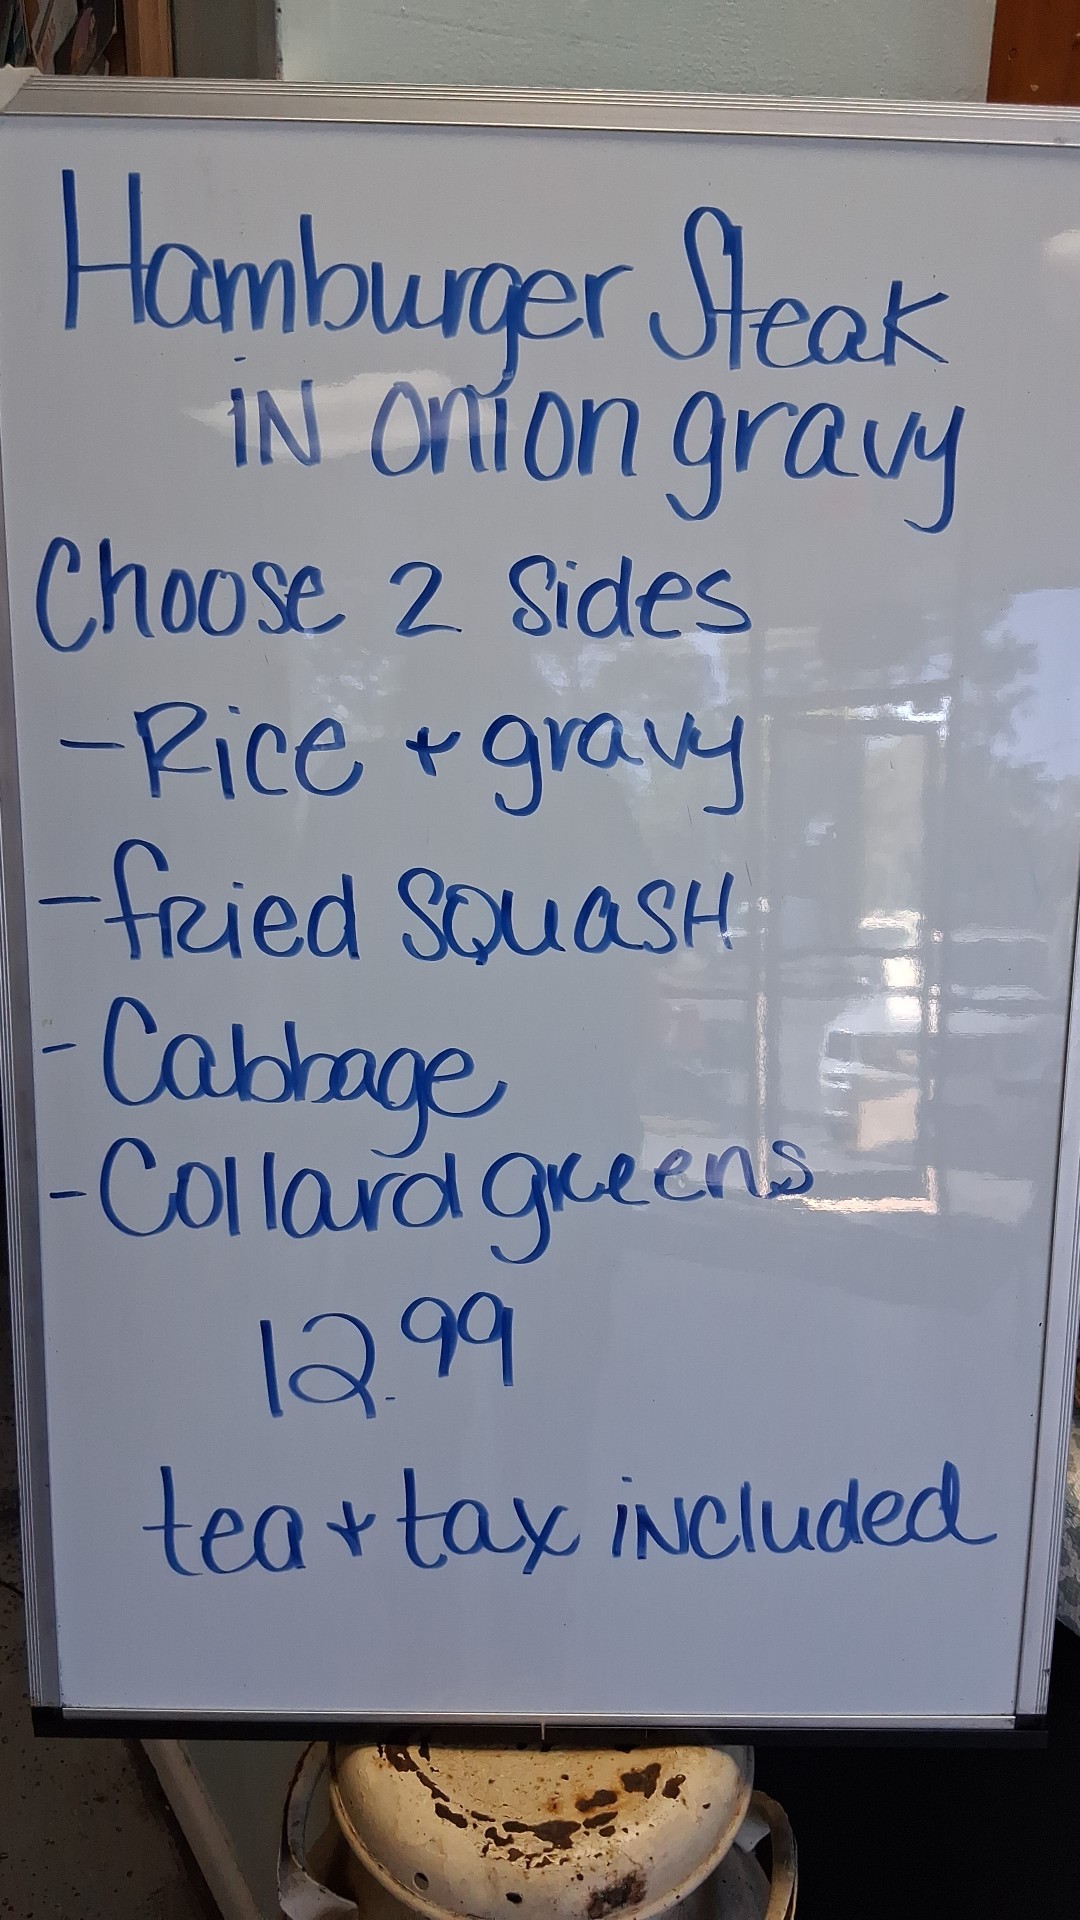 Hamburger Steak
IN onion gravy
Choose 2 Sides
- Rice + gravy
- fried SquasH
- Cabbage
- Collard greens
12.99
tea + tax iNcluded